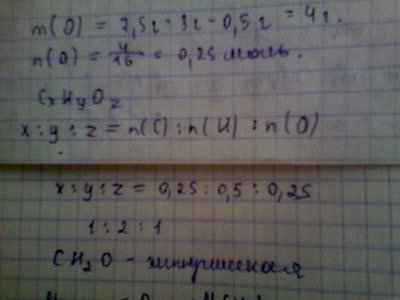 m(O) = 7,5г - 3г - 0,5г = 4г.
n(O) = 4/16 = 0,25 моль.
CxHyOz
x : y : z = n(C) : n(H) : n(O)
x : y : z = 0,25 : 0,5 : 0,25
1 : 2 : 1
CH2O - эмпирическая